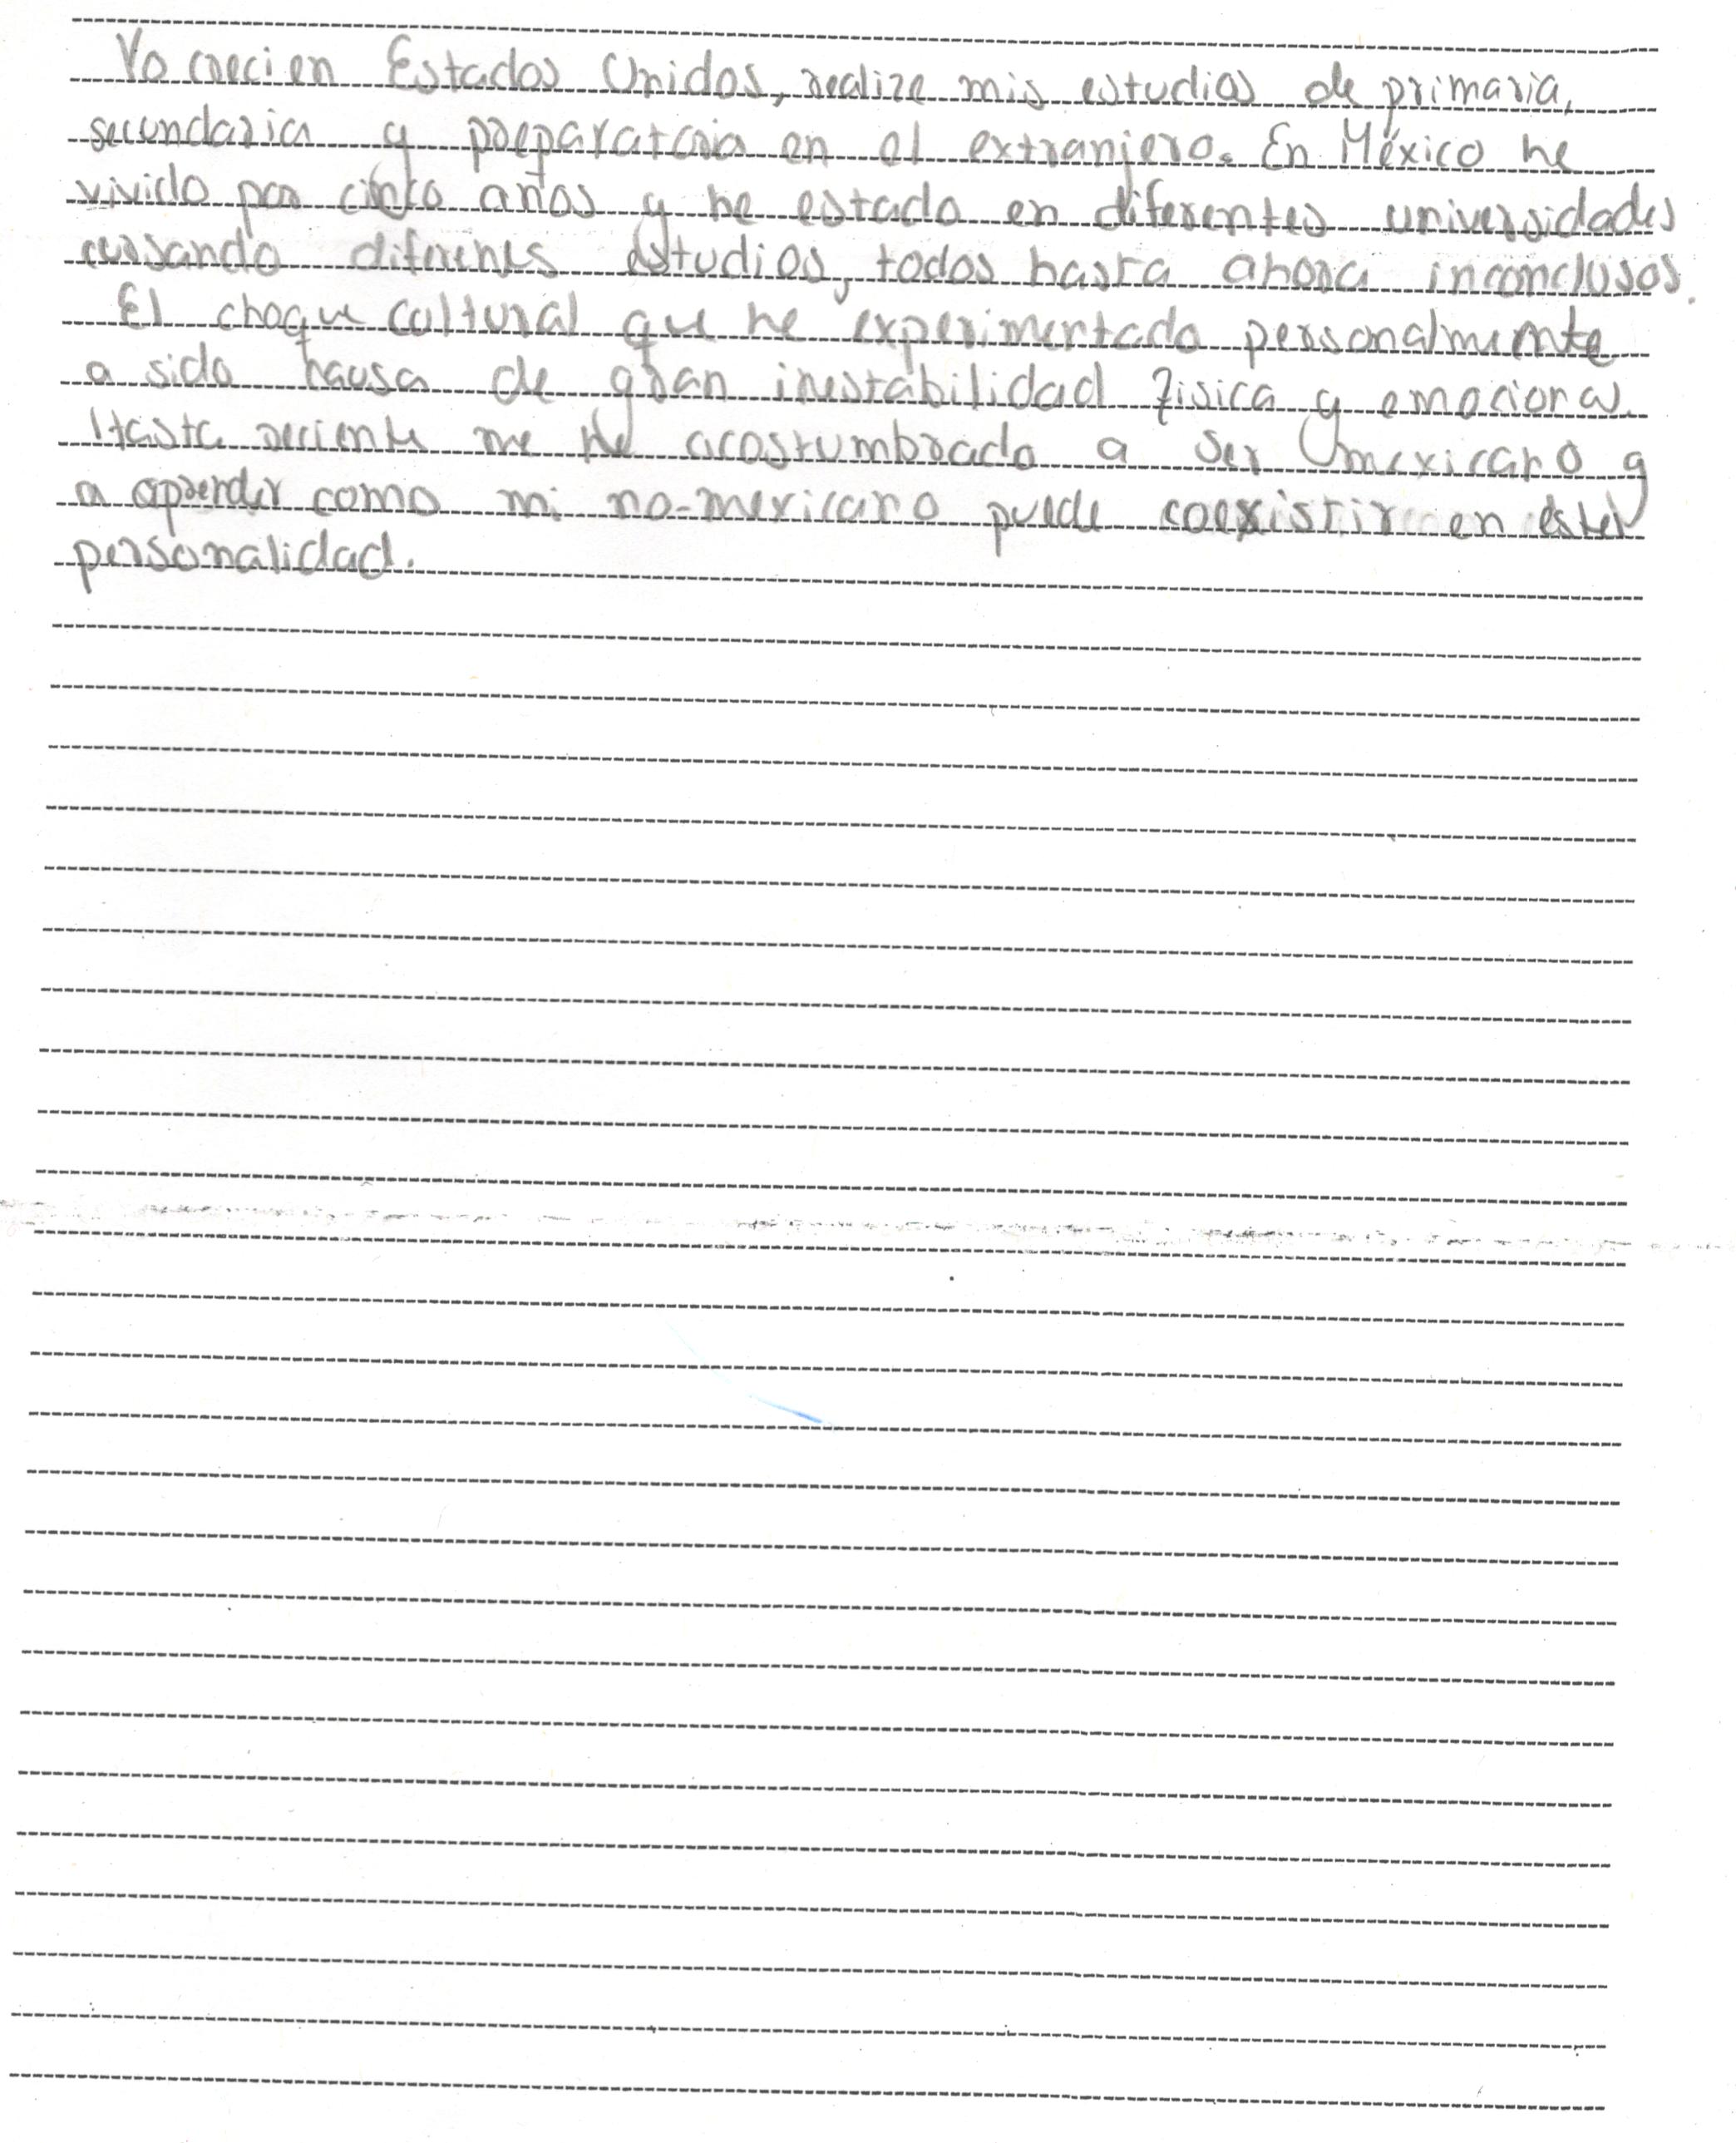 Yo creci en Estados Unidos, realize mis estudios de primaria,
secundaria y preparatoria en el extranjero. En México he
vivido por cinco años y he estado en diferentes universidades
cursando diferentes estudios, todos hasta ahora inconclusos.
El choque cultural que he experimentado personalmente
a sido causa de gran inestabilidad fisica y emocional.
Hasta reciente me he acostumbrado a ser mexicano y
a aprender como mi no-mexicano puede coexistir en esta
personalidad.